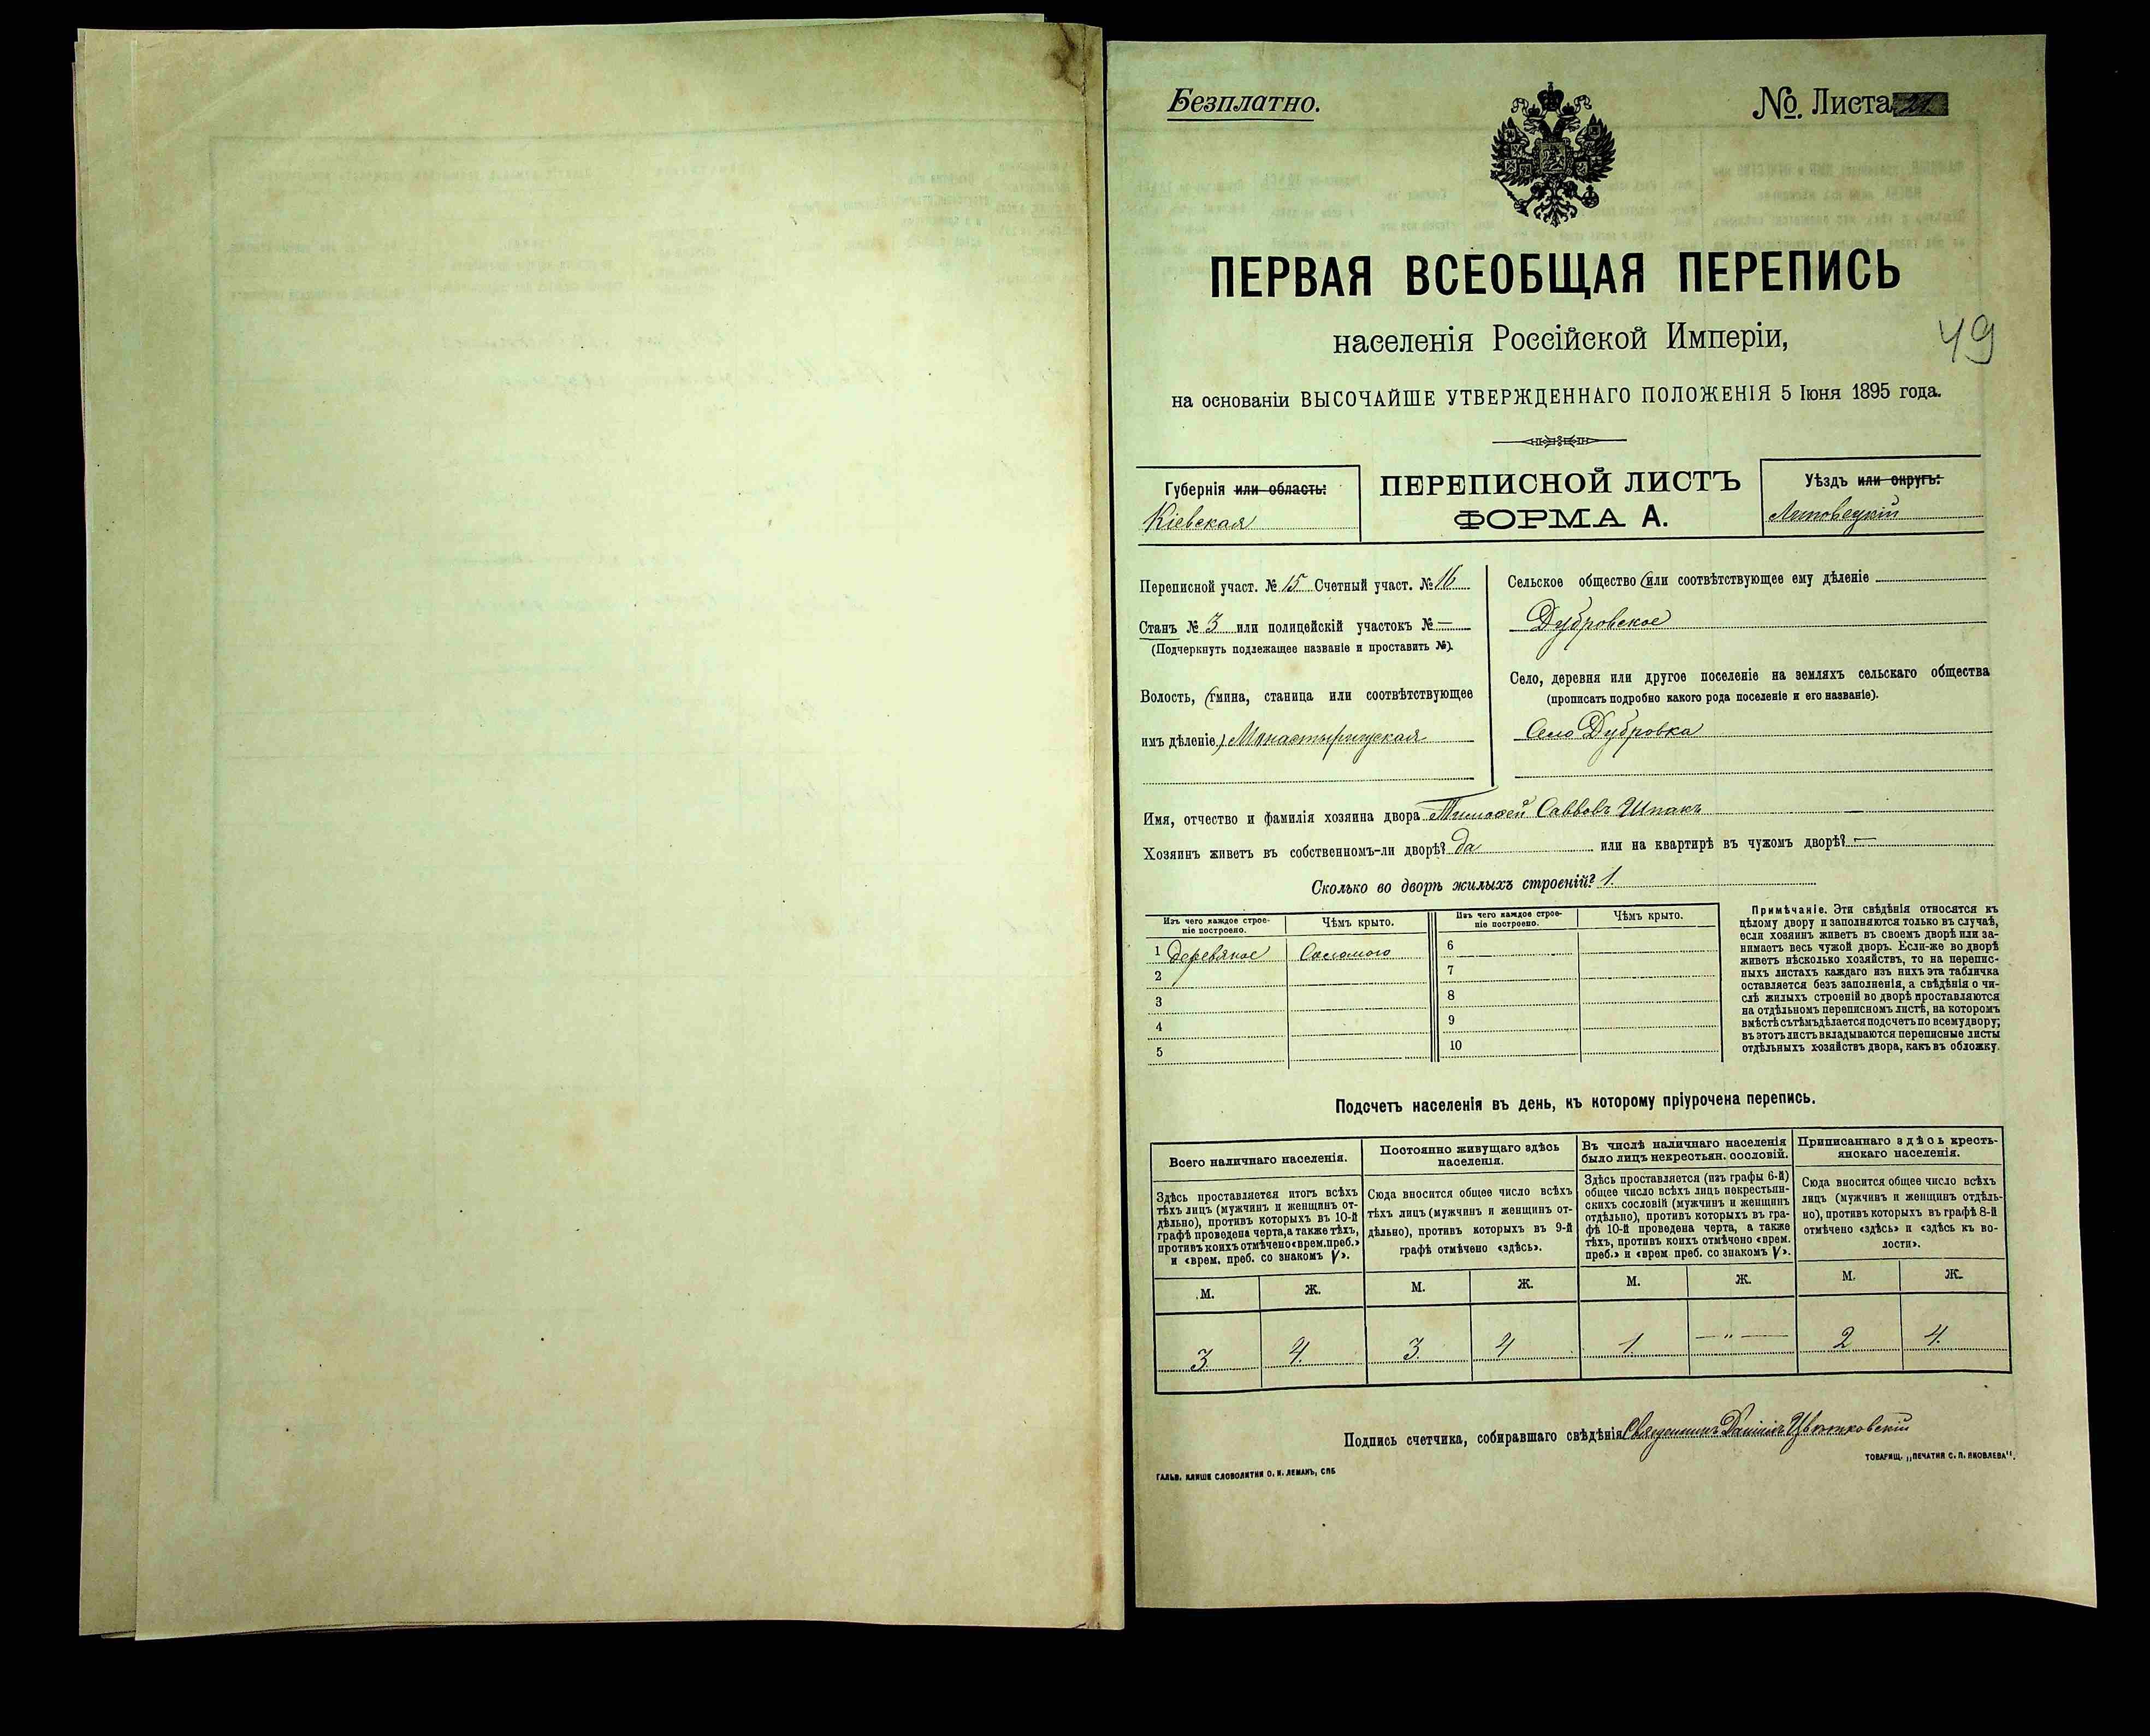 Безплатно.
№. Листа 21.
ПЕРВАЯ ВСЕОБЩАЯ ПЕРЕПИСЬ
населенія Россійской Имперіи,
49
на основаніи ВЫСОЧАЙШЕ УТВЕРЖДЕННАГО ПОЛОЖЕНІЯ 5 Іюня 1895 года.
Губернія или область:
Кіевская
ПЕРЕПИСНОЙ ЛИСТЪ
ФОРМА А.
Уѣздъ или округъ:
Липовецкій
Переписной участ. № 15 Счетный участ. № 16
Станъ № 3 или полицейскій участокъ № —
(Подчеркнуть подлежащее названіе и проставить №).
Волость, (гмина, станица или соотвѣтствующее
имъ дѣленіе) Монастырищская
Сельское общество (или соотвѣтствующее ему дѣленіе
Дубровское
Село, деревня или другое поселеніе на земляхъ сельскаго общества
(прописать подробно какого рода поселеніе и его названіе).
Село Дубровка
Имя, отчество и фамилія хозяина двора Тимофей Саввовъ Шпакъ
Хозяинъ живетъ въ собственномъ-ли дворѣ? да или на квартирѣ въ чужомъ дворѣ? —
Сколько во дворѣ жилыхъ строеній? 1.
Изъ чего каждое строе-
ніе построено.
Чѣмъ крыто.
Изъ чего каждое строе-
ніе построено.
Чѣмъ крыто.
1 деревяное Соломою
2
3
4
5
6
7
8
9
10
Примѣчаніе. Эти свѣдѣнія относятся къ
цѣлому двору и заполняются только въ случаѣ,
если хозяинъ живетъ въ своемъ дворѣ или за-
нимаетъ весь чужой дворъ. Если-же во дворѣ
живетъ нѣсколько хозяйствъ, то на перепис-
ныхъ листахъ каждаго изъ нихъ эта табличка
оставляется безъ заполненія, а свѣдѣнія о чи-
слѣ жилыхъ строеній во дворѣ проставляются
на отдѣльномъ переписномъ листѣ, на которомъ
вмѣстѣ съ тѣмъ дѣлается подсчетъ по всему двору;
въ этотъ листъ вкладываются переписные листы
отдѣльныхъ хозяйствъ двора, какъ въ обложку.
Подсчетъ населенія въ день, къ которому пріурочена перепись.
Всего наличнаго населенія.
Здѣсь проставляется итогъ всѣхъ
тѣхъ лицъ (мужчинъ и женщинъ от-
дѣльно), противъ которыхъ въ 10-й
графѣ проведена черта, а также тѣхъ,
противъ коихъ отмѣчено «врем. преб.»
и «врем. преб. со знакомъ V».
Постоянно живущаго здѣсь
населенія.
Сюда вносится общее число всѣхъ
тѣхъ лицъ (мужчинъ и женщинъ от-
дѣльно), противъ которыхъ въ 9-й
графѣ отмѣчено «здѣсь».
Въ числѣ наличнаго населенія
было лицъ некрестьян. сословій.
Здѣсь проставляется (изъ графы 6-й)
общее число всѣхъ лицъ некрестьян-
скихъ сословій (мужчинъ и женщинъ
отдѣльно), противъ которыхъ въ гра-
фѣ 10-й проведена черта, а также
тѣхъ, противъ коихъ отмѣчено «врем.
преб.» и «врем преб. со знакомъ V».
Приписаннаго здѣсь кресть-
янскаго населенія.
Сюда вносится общее число всѣхъ
лицъ (мужчинъ и женщинъ отдѣль-
но), противъ которыхъ въ графѣ 8-й
отмѣчено «здѣсь» и «здѣсь къ во-
лости».
М. Ж. М. Ж. М. Ж. М. Ж.
3 4. 3. 4 1 — „ — 2 4.
Подпись счетчика, собиравшаго свѣдѣнія Священникъ Даніилъ Цвѣтковскій
ГАЛЬВ. КЛИШЕ СЛОВОЛИТНИ О. И. ЛЕМАНЪ, СПБ
ТОВАРИЩ. „ПЕЧАТНЯ С. П. ЯКОВЛЕВА".